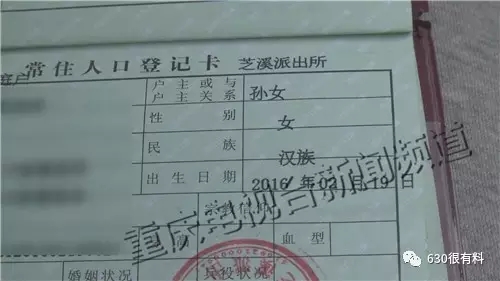 常住人口登记卡 芝溪派出所
户主或与
户主关系 孙女
性别 女
民族 汉族
出生日期 2016年02月19日
宗教信仰
血型
婚姻状况 兵役状况
重庆电视台新闻频道
630很有料